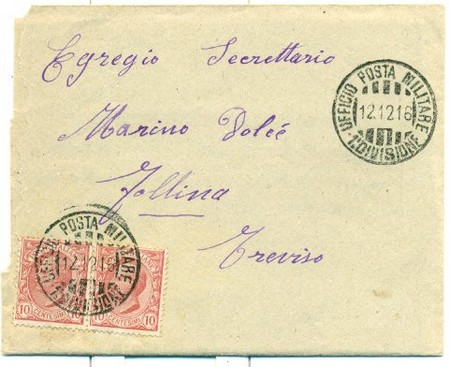 Egregio Secrettario
UFFICIO POSTA MILITARE
12.12.16
DIVISIONE
Marino Dolcé
Follina
Treviso
UFFICIO POSTA MILITARE
12.12.16
DIVISIONE
10 CENTESIMI 10
10 CENTESIMI 10